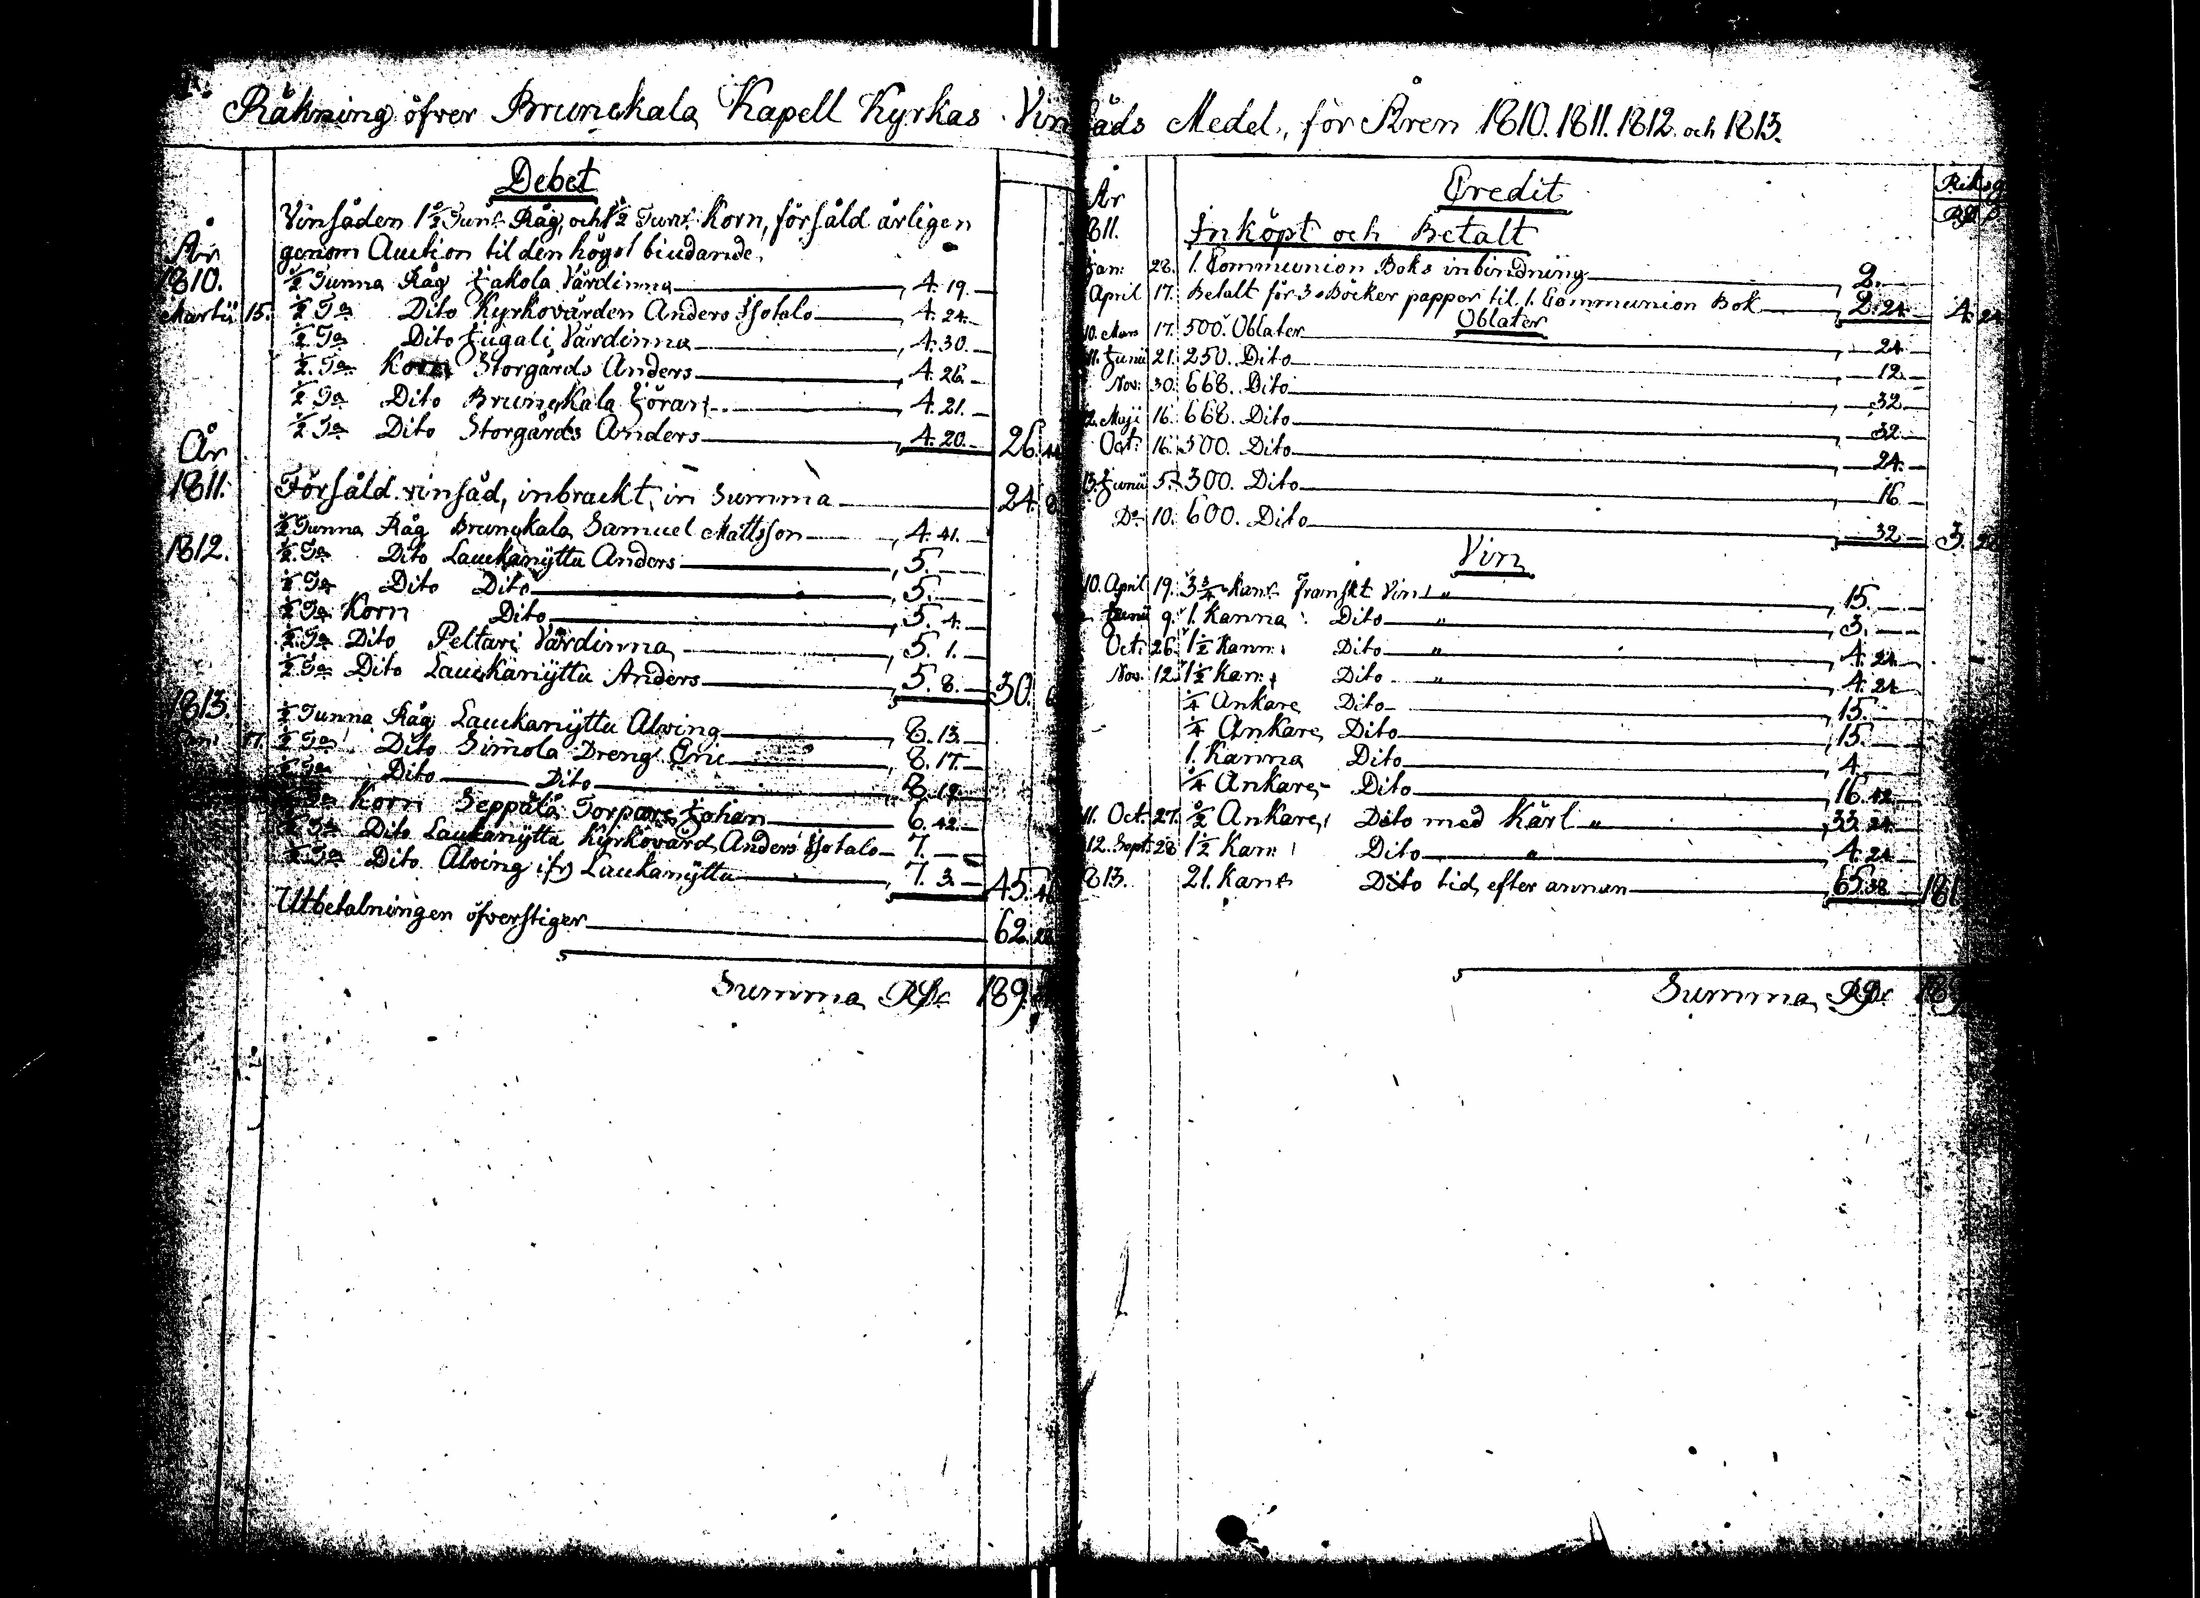 Räkning öfver Brunskala Kapell Kyrkas Vinsäds Medel, för Åren 1810. 1811. 1812. och 1813.
Debet
Vinsäden 1½ Tunr Råg, och 1½ Tunr Korn, försåld årligen
År genom Auction til den högst biudande.
1810. ½ Tunna Råg Jakola Värdinna 4. 19.
Martii 15. ½ Ta Dito Kyrkovärden Anders Isotalo 4. 24.
½ Ta Dito Värdinna 4. 30.
½ Ta Korn Storgårds Anders 4. 26.
½ Ta Dito Brunskala Jöran 4. 21.
½ Ta Dito Storgårds Anders 4. 20. 26.
År
1811. Försåld vinsäd, inbrackt, in Summa 24.
½ Tunna Råg Brunskala Samuel Mattsson 4. 41.
1812. ½ Ta Dito Laukanÿttu Anders 5.
½ Ta Dito Dito 5.
½ Ta Korn Dito 5. 4.
½ Ta Dito Peltari Värdinna 5. 1.
½ Ta Dito Laukanÿttu Anders 5. 8. 30.
1813. ½ Tunna Råg Laukanÿttu Alving 8. 13.
½ Ta Dito Simola Dreng Eric 8. 17.
½ Ta Dito Dito 8. 19.
½ Ta Korn Seppälä Torpare Johan 6. 42.
½ Ta Dito Laukanÿttu Kyrkovärd Anders Isotalo 7.
½ Ta Dito Alving ifr Laukanÿttu 7. 3. 45.
Utbetalningen öfverstiger 62.
Summa RDr 189.
Credit
År
811. Inköpt och Betalt
Jan: 28. 1. Communion Boks inbindning 2.
April 17. Betalt för 3 Böcker papper til 1. Communion Bok 2. 24. 4. 24
Oblater
10. Mars 17. 500. Oblater 24
11. Junii 21. 250. Dito 12
Nov: 30. 668. Dito 32
12. Maji 16. 668. Dito 32
Oct: 16. 500. Dito 24.
13. Junii 5. 300. Dito 16
Do 10. 600. Dito 32 3.
Vin
10. April 19. 3¾ Kanr franskt Vin " 15.
Junii 9. 1. Kanna Dito " 3.
Oct: 26. 1½ Kann: Dito " 4. 24
Nov. 12. 1½ Kan: Dito " 4. 24
¼ Ankare Dito 15.
¼ Ankare Dito 15.
1. Kanna Dito 4
¼ Ankare Dito 16. 42
11. Oct: 27. ½ Ankare Dito med Kärl " 33. 24.
12. Sept: 28 1½ Kan: Dito " 4. 24
813. 21. Kanr Dito tid efter annan 65. 38 181
Summa RDr 189